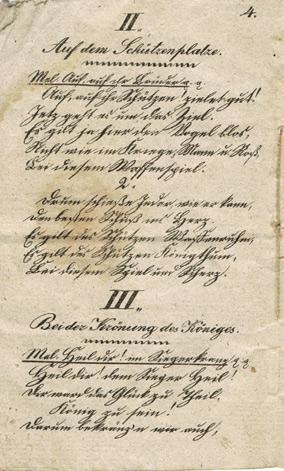 4.
II.
Auf dem Schützenplatze.
Mel. Auf, auf ihr Brüder q. q.
Auf, auf ihr Schützen zielet gut!
Jetz geht es um das Ziel.
Es gilt ja hier den Vogel blos,
Nicht wie im Kriege, Mann u Roß,
Bei diesem Waffenspiel.
2.
Drum schieße Jeder, wie er kann,
Den besten Schuß ins Herz.
Es gilt des Schützen Waffenruhm,
Es gilt des Schützen Königthum,
Bei diesem Spiel und Scherz.
III.
Bei der Krönung des Königes.
Mel. Heil dir! im Siegerkranz q. q.
Heil dir! dem Sieger Heil!
Dir ward das Glück zu Theil,
König zu sein!
Darum bekränz'n wir auch,